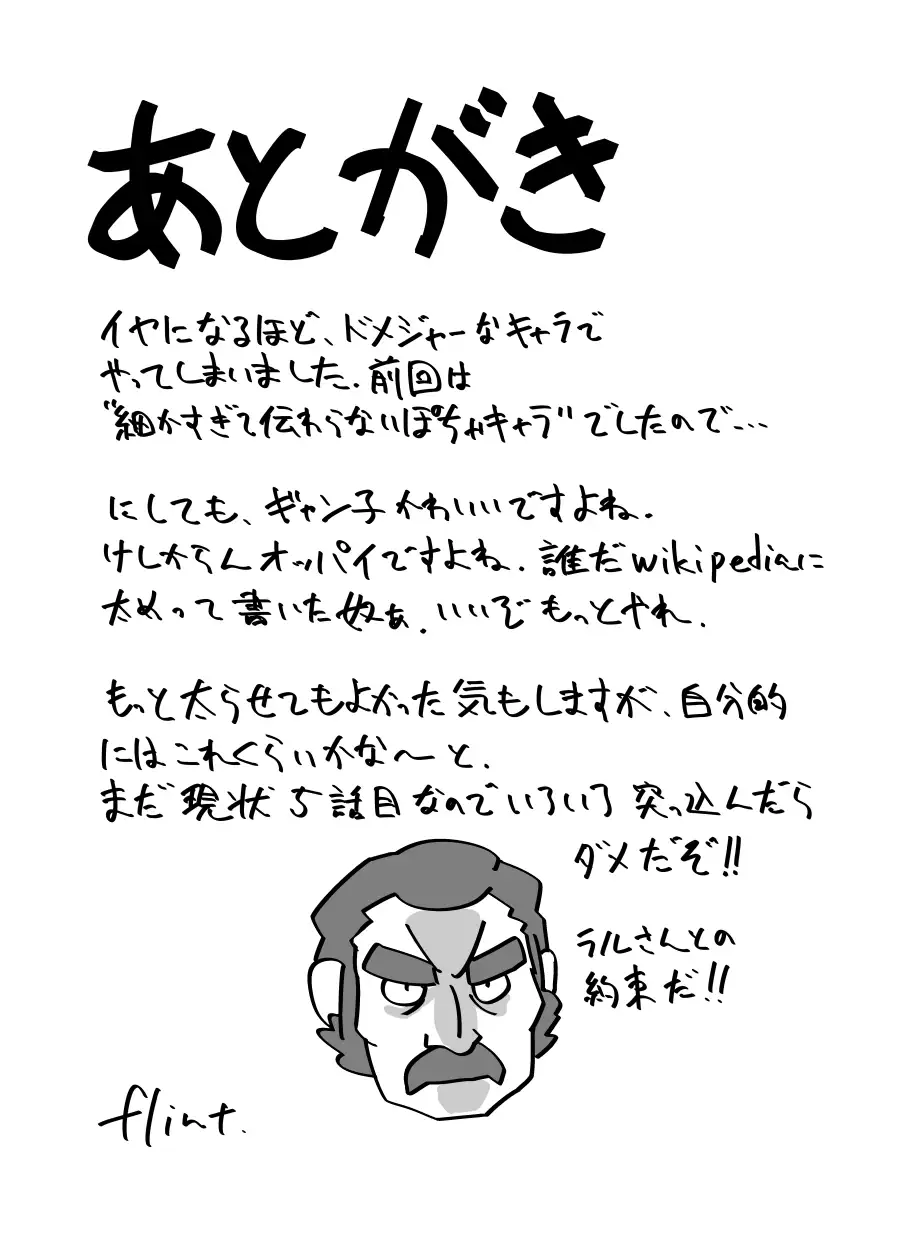 あとがき
イヤになるほど、ドメジャーなキャラで
やってしまいました.前回は
"細かすぎて伝わらないぽちゃキャラ"でしたので…
にしても、ギャン子かわいいですよね.
けしからんオッパイですよね.誰だwikipediaに
太めって書いた奴ぁ.いいぞもっとやれ.
もっと太らせてもよかった気もしますが、自分的
にはこれくらいかな〜と.
まだ現状5話目なのでいろいろ突っ込んだら
ダメだぞ!!
ラルさんとの
約束だ!!
flint.